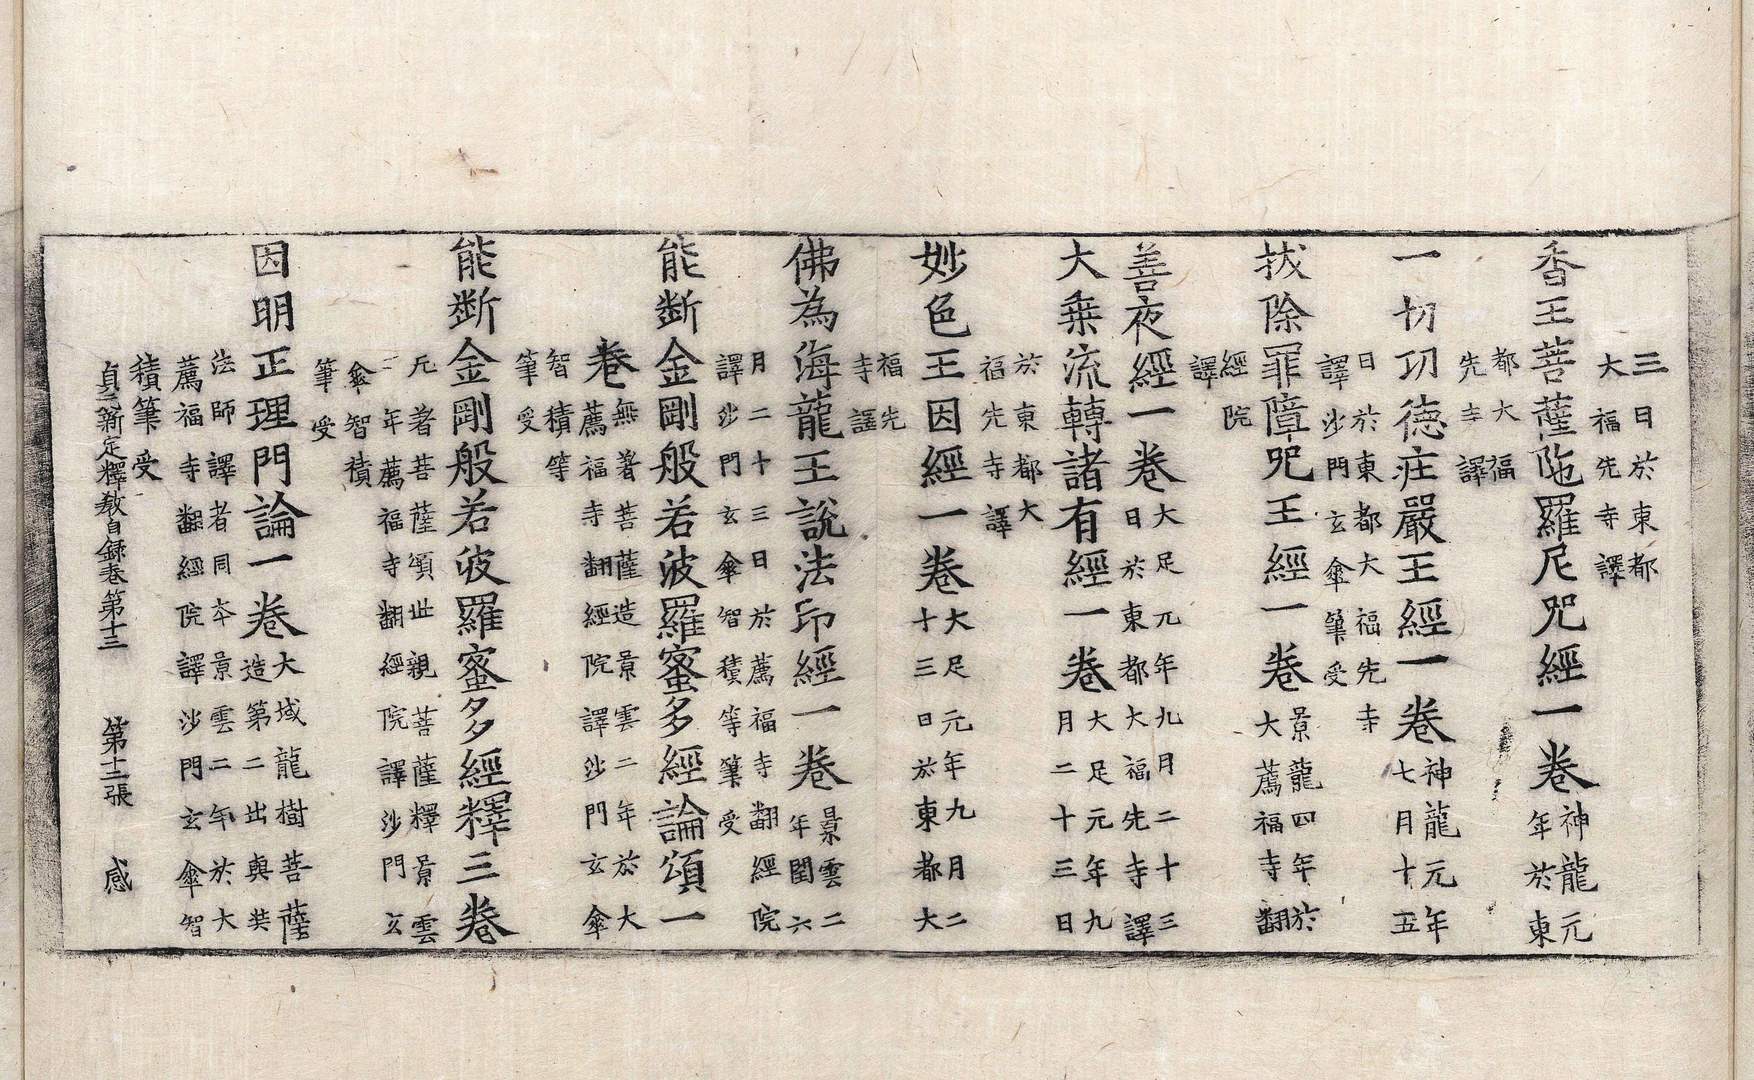 三日於東都
大福先寺譯
香王菩薩陁羅尼咒經一卷神龍元
年於東
都大福
先寺譯
一切功德庄嚴王經一卷神龍元年
七月十五
日於東都大福先寺
譯沙門玄傘筆受
拔除罪障咒王經一卷景龍四年於
大薦福寺翻
經院
譯
善夜經一卷大足元年九月二十三
日於東都大福先寺譯
大乗流轉諸有經一卷大足元年九
月二十三日
於東都大
福先寺譯
妙色王因經一卷大足元年九月二
十三日於東都大
福先
寺譯
佛為海龍王說法印經一卷景雲二
年閏六
月二十三日於薦福寺翻經院
譯沙門玄傘智積等筆受
能斷金剛般若波羅蜜多經論頌一
卷無著菩薩造景雲二年於大
薦福寺翻經院譯沙門玄傘
智積等
筆受
能斷金剛般若波羅蜜多經釋三卷
无著菩薩頌世親菩薩釋景雲
二年薦福寺翻經院譯沙門玄
傘智積
筆受
因明正理門論一卷大域龍樹菩薩
造第二出與奘
法師譯者同本景雲二年於大
薦福寺翻經院譯沙門玄傘智
積筆受
貞元新定釋教目録卷第十三 第十二張 感